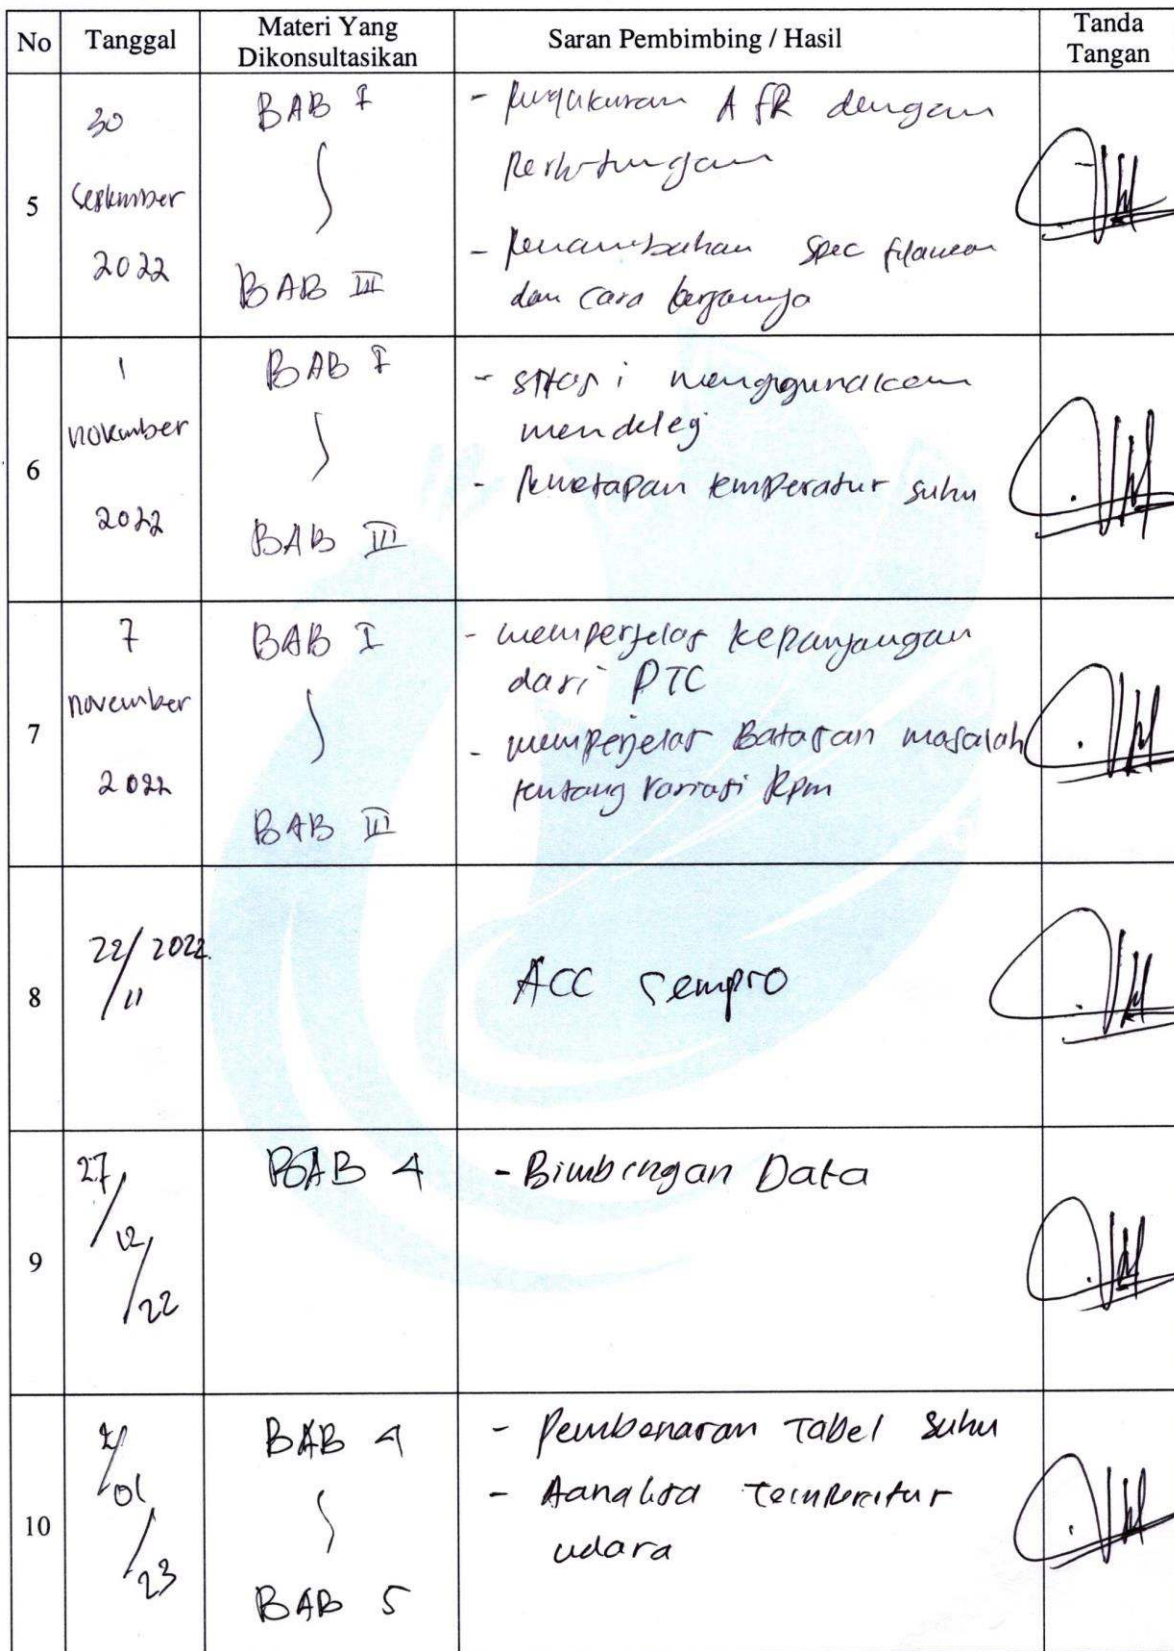 No Tanggal Materi Yang Dikonsultasikan Saran Pembimbing / Hasil Tanda Tangan
5
30
September
2022
BAB I
BAB III
- Pengukuran AFR dengan
Perhitungan
- Penambahan Spec filamen
dan cara kerjanya
6
1
november
2022
BAB I
BAB III
- sitasi menggunakan
mendeley
- Penetapan temperatur suhu
7
7
november
2022
BAB I
BAB III
- memperjelas kepanjangan
dari PTC
- memperjelas Batasan masalah
tentang variasi Rpm
8
22/11 2022.
ACC Sempro
9
27/12/22
BAB 4
- Bimbingan Data
10
/01/23
BAB 4
BAB 5
- Pembenaran Tabel Suhu
- Aanalisa Temperatur
udara